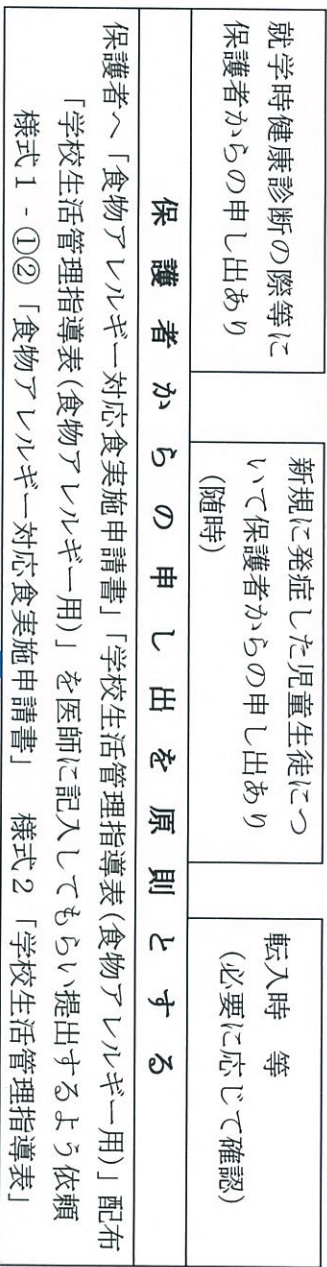 就学時健康診断の際等に
保護者からの申し出あり
新規に発症した児童生徒につ
いて保護者からの申し出あり
(随時)
転入時　等
(必要に応じて確認)
保護者からの申し出を原則とする
保護者へ「食物アレルギー対応食実施申請書」「学校生活管理指導表(食物アレルギー用)」配布
「学校生活管理指導表(食物アレルギー用)」を医師に記入してもらい提出するよう依頼
様式1-①②「食物アレルギー対応食実施申請書」　様式2「学校生活管理指導表」